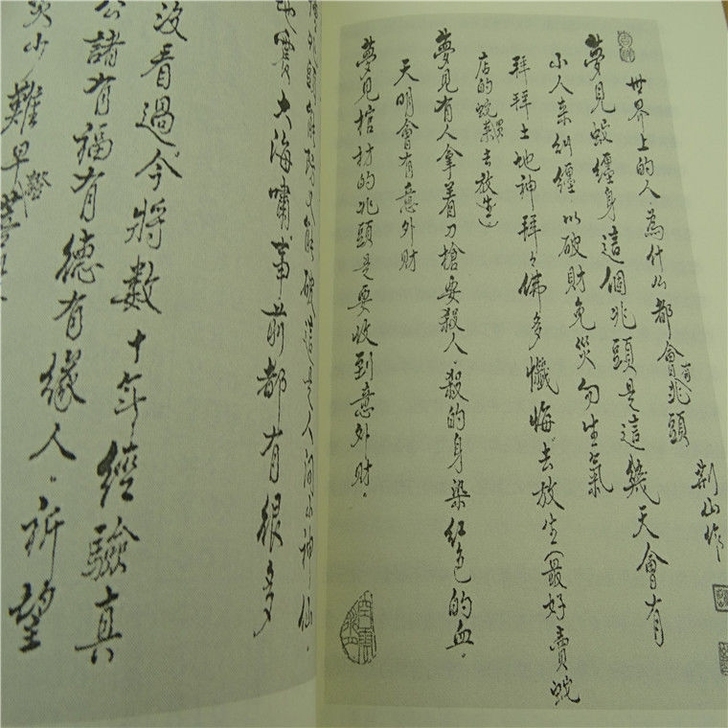 世界上的人.為什么都會有兆頭
荊山作
夢見蛇纏身這個兆頭是這幾天會有
小人來糾纏以破財免災勿生氣
拜拜土地神拜々佛多懺悔去放生(最好賣蛇
店的蛇買來去放生)
夢見有人拿着刀槍要殺人.殺的身染紅色的血.
天明會有意外財
夢見棺材的兆頭是要收到意外財.
能破這是人間神仙.
地震大海嘯事前都有很多
沒看過今將數十年經驗真
公諸有福有德有緣人.祈望
災少難早發菩